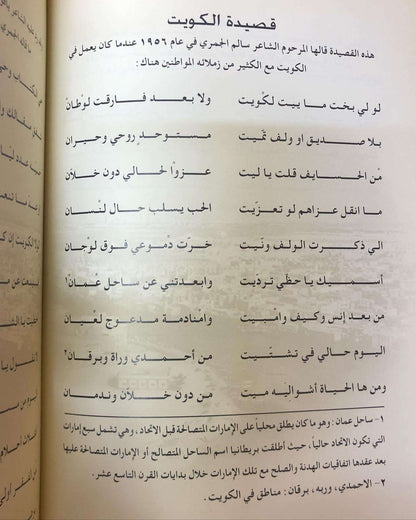 قصيدة الكويت
هذه القصيدة قالها المرحوم الشاعر سالم الجمري في عام ١٩٥٦ عندما كان يعمل في
الكويت مع الكثير من زملائه المواطنين هناك:
لو لي بخت ما ييت لكويت ولا بعد فارقت لوطان
بلا صديق او ولف تميت مستوحد روحي وحيران
من الحسايف قلت يا ليت عزوا لحالي دون خلان
ما انقل عزاهم لو تعزيت الحب يسلب حال لنسان
الي ذكرت الولف ونيت خرت دموعي فوق لوجان
أسميك يا حظي ترديت وابعدتني عن ساحل عمان١
من بعد إنس وكيف وامبيت وامنادمة مدعوج لعيان
اليوم حالي في تشتيت من أحمدي وراة وبرقان٢
ومن ها الحياة أشواليه ميت من دون خلان وندمان
١- ساحل عمان: وهو ما كان يطلق محلياً على الإمارات المتصالحة قبل الاتحاد، وهي تشمل سبع إمارات
التي تكون الاتحاد حالياً، حيث أطلقت بريطانيا اسم الساحل المتصالح أو الإمارات المتصالحة عليها
بعد عقدها اتفاقيات الهدنة والصلح مع تلك الإمارات خلال بدايات القرن التاسع عشر.
٢- الاحمدي، وربه، برقان: مناطق في الكويت.